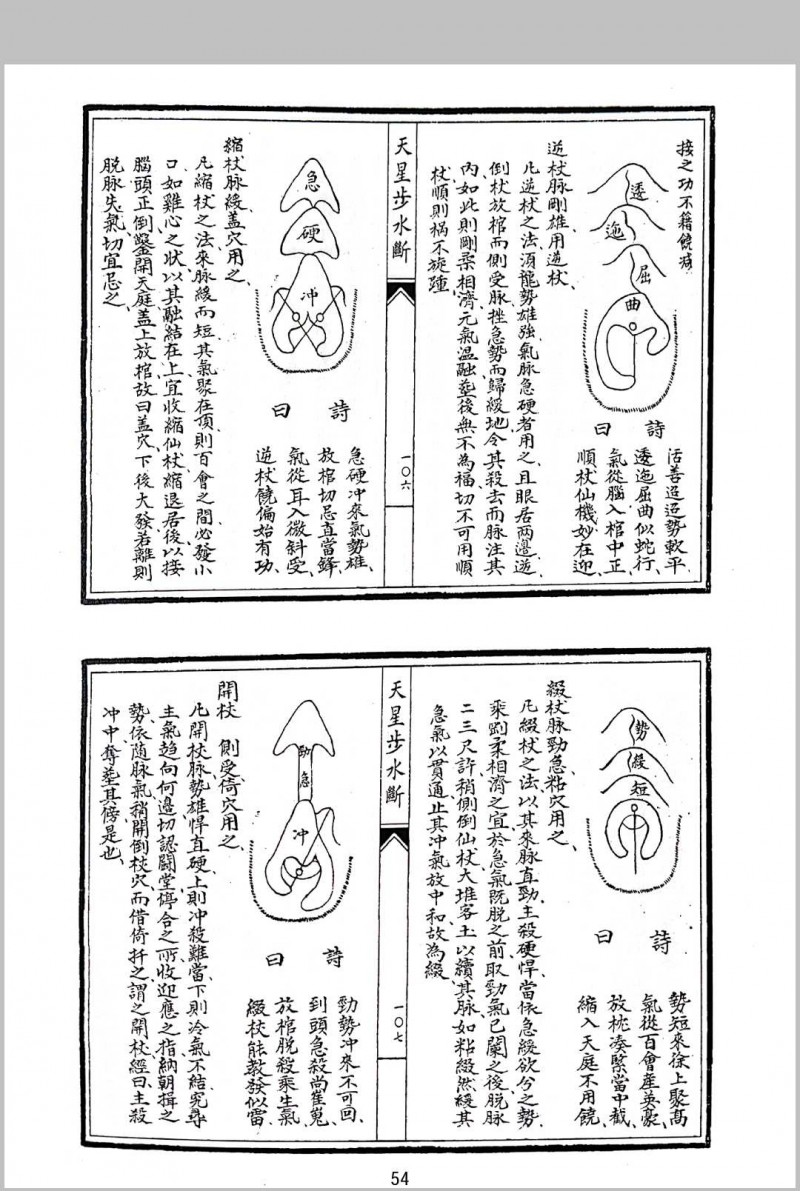 接之功不籍饒减
透
迤
屈
曲
詩曰
活善迢迢勢軟平
逶迤屈曲似蛇行
氣從腦入棺中正
順杖仙機妙在迎
逆杖脉剛雄用逆杖
凡逆杖之法須龍勢雄強氣脉急硬者用之且眼居兩邊逆
倒杖放棺而側受脉挫急勢而歸緩地令其殺去而脉注其
內如此則剛柔相濟元氣溫融塟後無不為福切不可用順
杖順則禍不旋踵
天星步水斷
一〇六
急
硬
冲
詩曰
急硬冲來氣勢雄
放棺切忌直當鋒
氣從耳入微斜受
逆杖饒偏始有功
縮杖脉緩盖穴用之
凡縮杖之法來脉緩而短其氣聚在頂則百會之間必發小
口如雞心之狀以其融結在上宜收縮仙杖縮退居後以接
腦頭正倒鑿開天庭盖上放棺故曰盖穴下後大發若離則
脱脉失氣切宜忌之
勢
緩
短
詩曰
勢短來徐上聚高
氣從百會産英豪
放枕湊緊當中截
縮入天庭不用饒
綴杖脉勁急粘穴用之
凡綴杖之法以其來脉直勁主殺硬悍當依急緩欲分之勢
乘剛柔相濟之宜於急氣既脱之前取勁氣已闌之後脱脉
二三尺許稍側倒仙杖大堆客土以續其脉如粘綴然緩其
急氣以貫通止其冲氣放中和故為綴
天星步水斷
一〇七
勁
急
冲
詩曰
勁勢冲來不可回
到頭急殺尚崔嵬
放棺脱殺乘生氣
綴杖能教發似雷
開杖 側受倚穴用之
凡開杖脉勢雄悍直硬上則冲殺難當下則冷氣不結究尋
主氣趋向何邊切認闘堂停合之所收迎應之指納朝揖之
勢依随脉氣稍開倒杖穴而借倚扦之謂之開杖經曰主殺
冲中奪塟其傍是也
54